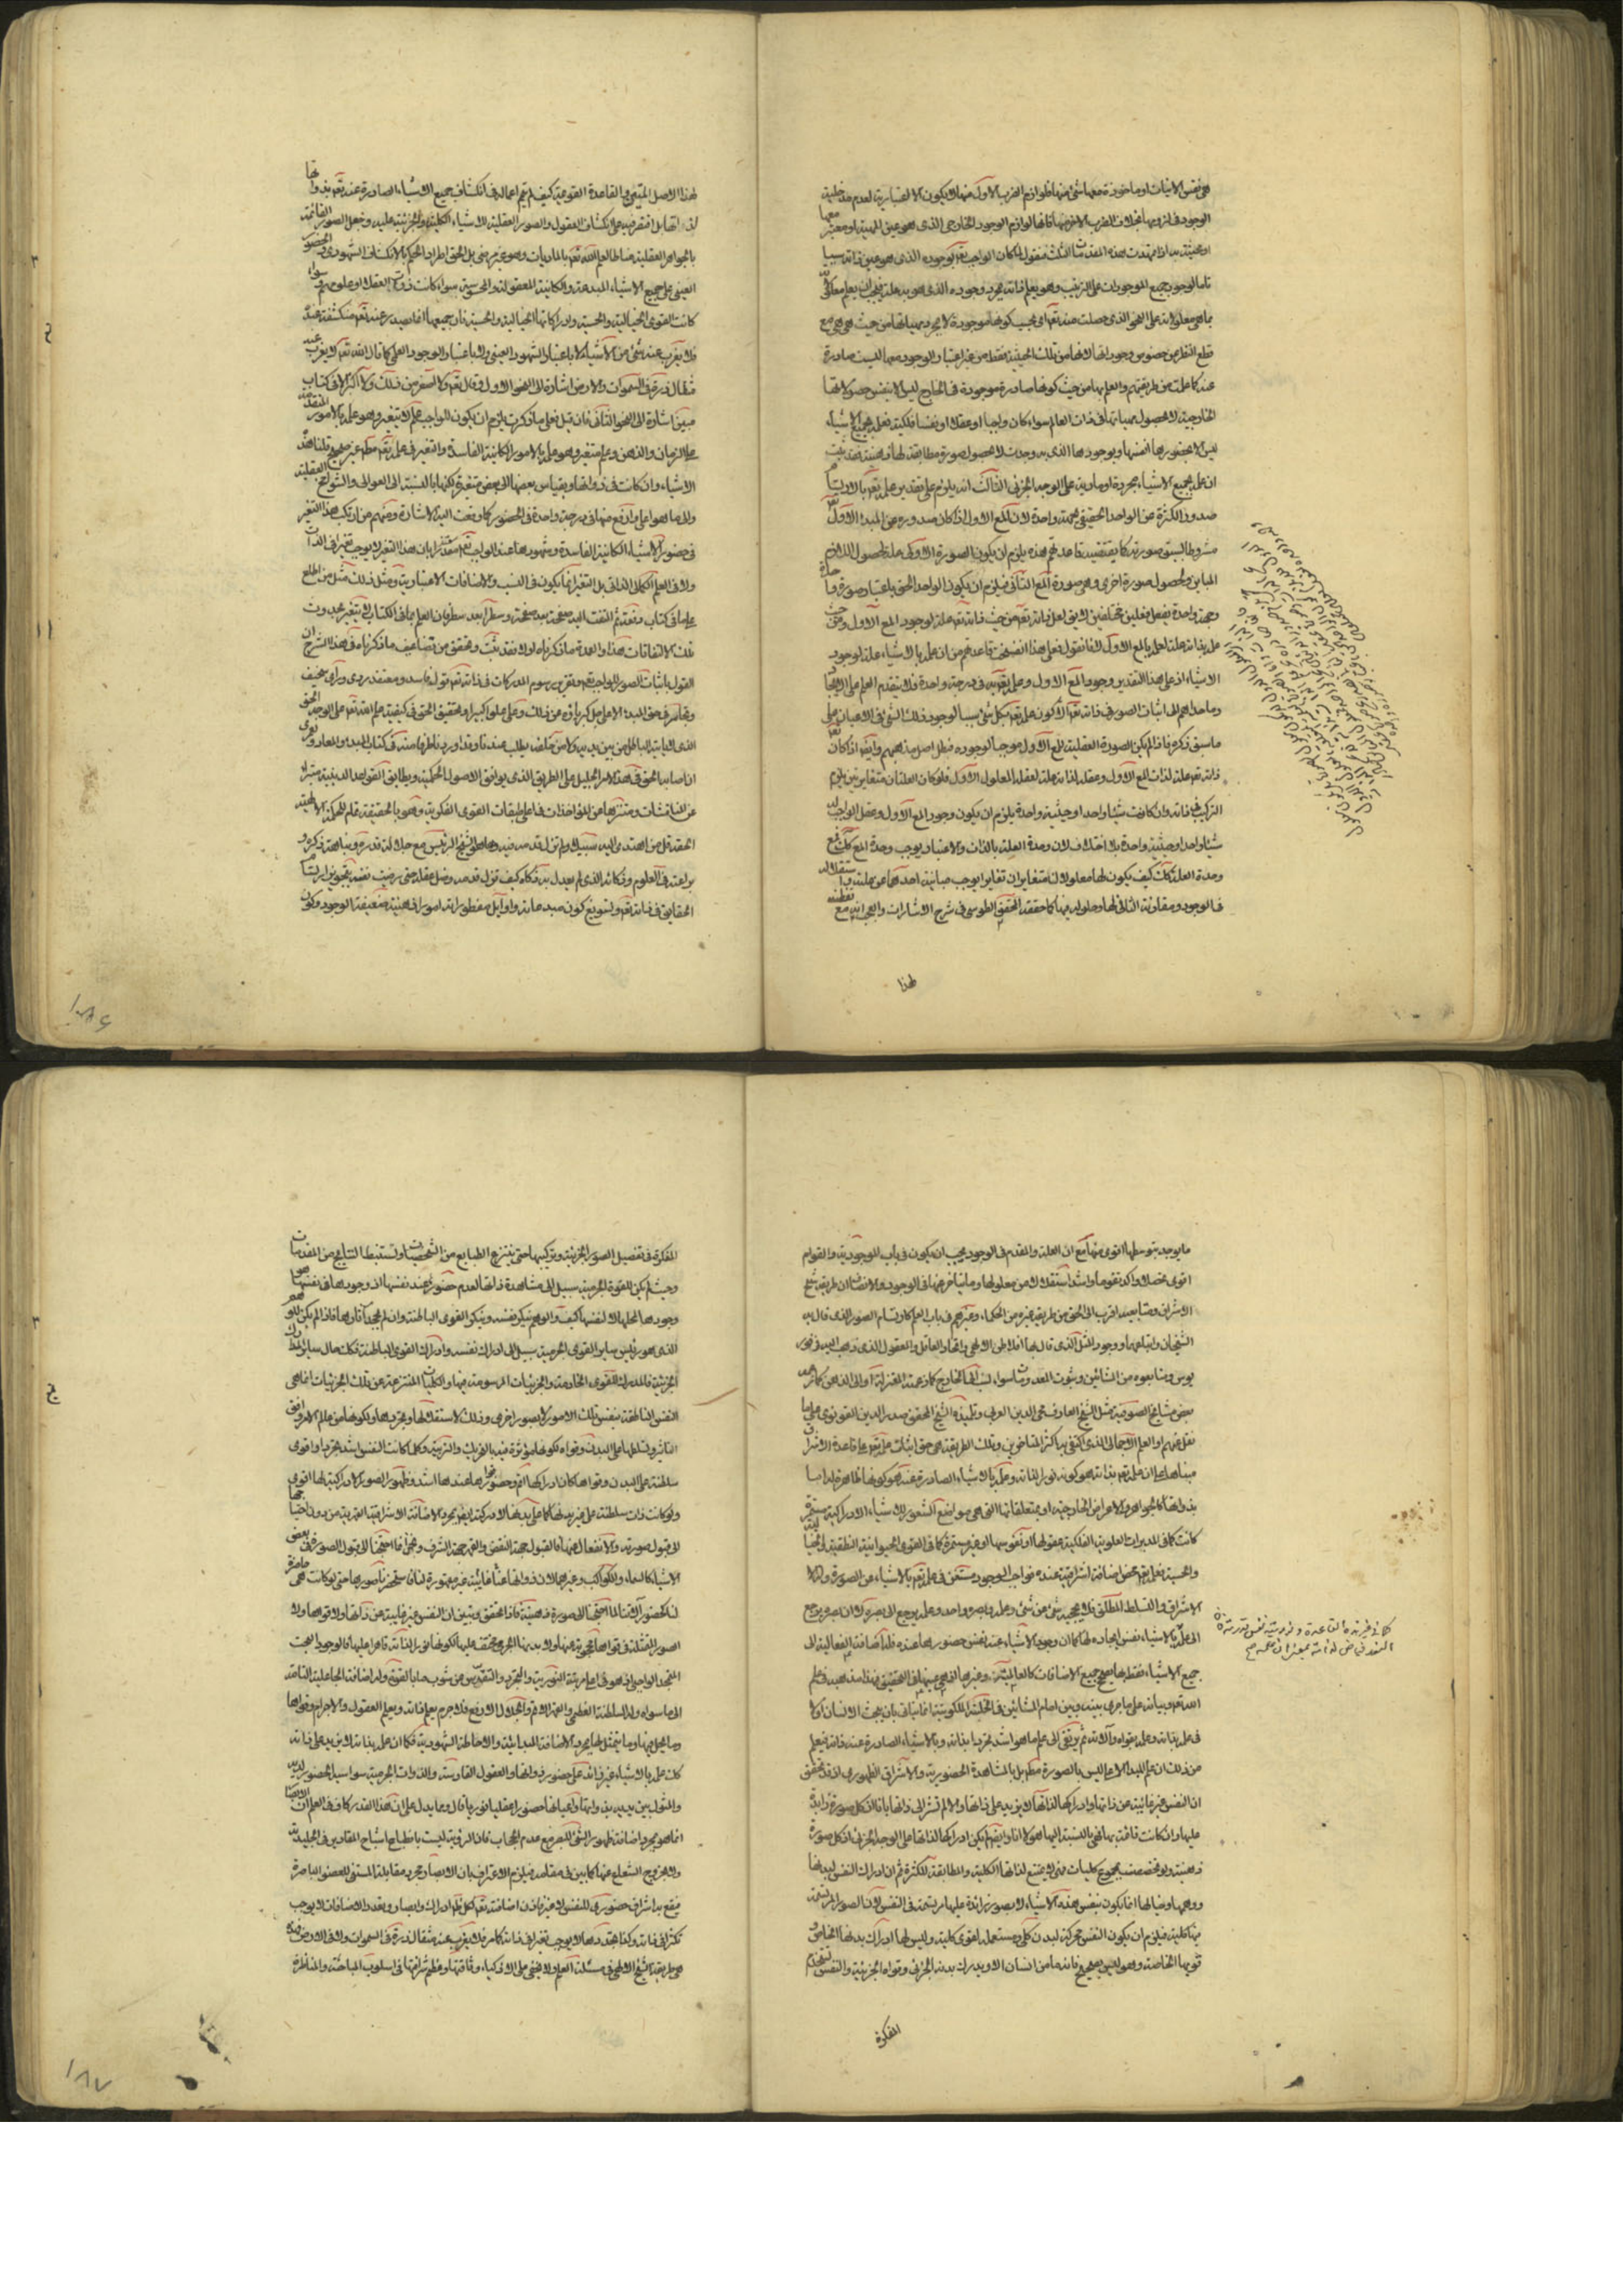 هي نفس الانيات او ماخوذة معها شئ منها فلوازم الضرب الاول منها لا يكون الا اعتبارية لعدم مدخلية
الوجود في لزومها بخلاف الضرب الاخر منها فانها لوازم الوجود الخارجي الذي هو عين المهية او معتبر معها
او عينية بها اذا تمهدت هذه المقدمات الثلث فنقول لما كان الواجب تعم بوجوده الذي هو عين ذاته سببا
تاما لوجود جميع الموجودات على الترتيب وهو يعلم ذاته بمجرد وجوده الذي هو به علة فيجب ان يعلم معلولاته
بما هي معلولاته على النحو الذي حصلت منه تعم اي بحسب كونها موجودة لا بمجرد مهياتها من حيث هي هي مع
قطع النظر عن خصوص وجوداتها لانها من تلك الحيثية فقط من غير اعتبار الوجود معها ليست صادرة
عنه كما علمت من طريقتهم والعلم بها من حيث كونها صادرة موجودة في الخارج ليس الا بنفس حصولاتها
الخارجية لا بحصول مهياتها في ذات العالم سواء كان واجبا او عقلا او نفسا فلكية فعلمه بجميع الاشياء
ليس الا بحضورها انفسها وبوجودها الذي به وجدت لا بحصول صورة مطابقة لها ذهنية فقد ثبت
ان علمه بجميع الاشياء مجردة او مادية على الوجه الجزئي الثالث انه يلزم على تقدير علمه تعم بالارتسام
صدور الكثرة عن الواحد الحقيقي بجهة واحدة لان المع الاول اذا كان صدوره عن المبدء الاول تعم
مشروطا بسبق صورته كما يقتضيه قاعدتهم هذه يلزم ان يكون الصورة الاولى علة لحصول اللازم
المباين ولحصول صورة اخرى وهي صورة المع الثاني فيلزم ان يكون الواحد الحق باعتبار صورة واحدة
وجهة واحدة يفعل فعلين مختلفين لا يق لعل ذاته تعم من حيث ذاته تعم علة لوجود المع الاول ومن حيث
علمه بذاته علة لعلمه بالمع الاول لانا نقول فعلى هذا انفسخت قاعدتهم من ان علمه بالاشياء علة لوجود
الاشياء اذ على هذا التقدير وجود المع الاول وعلمه تعم به في درجة واحدة فلا يتقدم العلم على الايجاد
وما دعاهم الى اثبات الصور في ذاته تعم الا كون علمه تعم بكل شئ سببا لوجود ذلك الشئ في الاعيان على
ما سبق ذكره فاذا لم يكن الصورة العقلية للمع الاول موجبا لوجوده فبطل اصل مذهبهم وايضا اذا كان
ذاته تعم علة لذات المع الاول وعقله لذاته علة لعقله المعلول الاول فلو كان العلتان متغايرتين يلزم
التركيب في ذاته وان كانت شيئا واحدا وحيثية واحدة يلزم ان يكون وجود المع الاول وعقل الواجب له
شيئا واحدا وحيثية واحدة بلا اختلاف لان وحدة العلة بالذات والاعتبار يوجب وحدة المع كذلك فمع
وحدة العلة كذلك كيف يكون لها معلولان متغايران تغايرا يوجب مباينة احدهما عن علته واستقلاله
في الوجود ومقارنة الثاني لها وحلوله فيها كما حققه المحقق الطوسي في شرح الاشارات والعجب انه مع تفطنه
لهذا
لهذا الاصل المتين والقاعدة القويمة كيف لم يتم اعماله في انكشاف جميع الاشياء الصادرة عنه تعم بذواتها
لذاته تعالى بل اقتصر فيه على انكشاف العقول والصور العقلية للاشياء الكلية والجزئية عليه وجعل الصور القائمة
بالجواهر العقلية مناطا لعلم الله تعم بالماديات وهو غير مرضي بل الحق اطراد الحكم بالانكشاف الشهودي والحضور
العيني على جميع الاشياء المبدعة والكائنة المعقولة والمحسوسة سواء كانت ذوات العقلاء او علومهم وسواء
كانت القوى الخيالية والحسية وادراكاتها الخيالية والحسية فان جميعها انما يصدر عنه تعم منكشفة عنده
فلا يعزب عنه شئ من الاشياء لا باعتبار الشهود العيني ولا باعتبار الوجود العلمي كما قال الله تعم لا يعزب عنه
مثقال ذرة في السموات ولا في الارض اشارة الى النحو الاول وقال تعم ولا اصغر من ذلك ولا اكبر الا في كتاب
مبين اشارة الى النحو الثاني فان قيل فعلى ما ذكرت يلزم ان يكون للواجب علم لا يتغير وهو علمه بالامور المتقدمة
على الزمان والذهن وعلم متغير وهو علمه بالامور الكائنة الفاسدة والتغير في علمه تعم مطم غير صحيح قلنا هذه
الاشياء وان كانت في ذواتها وبقياس بعضها الى بعض متغيرة لكنها بالنسبة الى العوالي والشوامخ العقلية
والى ما هو اعلى وارفع منها في درجة واحدة في الحضور كما وقعت اليه الاشارة ومنهم من ارتكب هذا التغير
في حضور الاشياء الكائنة الفاسدة وشهودها عند الواجب تعم معتذرا بان هذا التغير لا يوجب تغيرا في الذات
ولا في العلم الكمالي الذاتي بل التغير انما يكون في النسب والاضافات الاعتبارية ومثل ذلك مثل من اطلع
على ما في كتاب دفعة ثم التفت اليه صفحة بعد صفحة وسطرا بعد سطر فان العلم بما في الكتاب لا يتغير بحدوث
تلك الالتفاتات هذا والعمدة ما ذكرناه اولا فقد ثبت وتحقق من تضاعيف ما ذكرناه في هذا الشرح ان
القول باثبات الصور للواجب تعم وتقرير رسوم المدركات في ذاته تعم قول فاسد ومعتقد ردي ورأي سخيف
وتجاسر في حق المبدء الاعلى جل كبرياؤه عن ذلك وعلى علوا كبيرا وتحقيق الحق في كيفية علم الله تعم على الوجه الحق
الذي لا ياتيه الباطل من بين يديه ولا من خلفه يطلب عندنا وقد اوردنا طرفا منه في كتاب المبدء والمعاد ولعمري
ان اصابة الحق في هذا الامر الجليل على الطريق الذي يوافق الاصول الحكمية ويطابق القواعد الدينية متبرئا
عن المناقشات ومتنزها عن المؤاخذات في اعلى طبقات القوى الفكرية وهو بالحقيقة تمام الحكمة الالهية
الحقة قل من اهتدى اليه سبيلا ولم تزل قدمه فيه وها هو الشيخ الرئيس مع جلالة قدره ونباهة ذكره و
براعته في العلوم وذكائه الذي لم يعدل به ذكاء كيف تزل قدمه وضل عقله حتى رضيت نفسه بتجويز ارتسام
الحقايق في ذاته تعم وتسويغ كون مبدعاته واوايل مفطوراته امورا ذهنية ضعيفة الوجود وكون
١٨٦
ما يوجد بتوسطها اقوى منها مع ان العلة والمقدم في الوجود يجب ان يكون في باب الموجودية والقوام
اقوى تحصلا واكد تقوما واشد استقلالا من معلولها وما يتاخر عنها في الوجود والانصاف ان طريقة شيخ
الاشراق ومتابعيه اقرب الى الحق من طريقة غيره من الحكماء وغيرهم في باب العلم كارتسام الصور الذي قال به
الشيخان واتباعهما ووجود المثل الذي قال بها افلاطن الالهي واتحاد العاقل والمعقول الذي ذهب اليه فرفور
يوس ومتابعوه من المشائين وثبوت المعدومات سواء نسب الى الخارج كما زعمته المعتزلة او الى الذهن كما زعمه
بعض مشايخ الصوفية مثل الشيخ العارف محي الدين العربي وتلميذه الشيخ المحقق صدر الدين القونوي على ما
نقل عنهم او العلم الاجمالي الذي اكتفى به اكثر المتاخرين وتلك الطريقة هي في حق اثبات علمه تعم على قاعدة الاشراق
مبناها على ان علمه تعم بذاته هو كونه نورا لذاته وعلمه بالاشياء الصادرة عنه هو كونها ظاهرة له اما
بذواتها كالجواهر والاعراض الخارجية او بمتعلقاتها التي هي مواضع الشعور للاشياء الادراكية مستمرة
كانت كما في المدبرات العلوية الفلكية عقولها او نفوسها او غير مستمرة كما في القوى الحيوانية النطقية والخيالية
والحسية فعلمه تعم محض اضافة اشراقية عنده فواجب الوجود مستغن في علمه تعم بالاشياء عن الصورة وله
الاشراق والتسلط المطلق فلا يحجبه شئ عن شئ وعلمه وبصره واحد وعلمه يرجع الى بصره لا ان بصره يرجع
الى علمه بالاشياء نفس ايجاده لها كما ان وجود الاشياء عنه نفس حضورها عنده فله اضافة الفعالية الى
جميع الاشياء فقط بها يصح جميع الاضافات كالعالمية وغيرها اذ هي عينها في التحقيق فهذا مذهبه في علم
الله تعم وبيانه على ما جرى بينه وبين امام المشائين في الخلسة الملكوتية انما يتاتى بان يبحث الانسان اولا
في علمه بذاته وعلمه بقواه وآلاته ثم يرتقي الى علم ما هو اشد تجردا بذاته وبالاشياء الصادرة عنه ذاته فيعلم
من ذلك ان علم المبدء الاعلى ليس بالصورة مطم بل بالمشاهدة الحضورية والاشراق الظهوري اذ قد تحقق
ان النفس غير غائبة عن ذاتها وادراكها لذاتها لا يزيد على ذاتها والا لم تشر الى ذاتها بانا اذ كل صورة زايدة
عليها وان كانت قائمة بها فهي بالنسبة اليها هو لا انا وايضا لم يكن ادراكها لذاتها على الوجه الجزئي اذ كل صورة
ذهنية ولو تخصصت بمجموع كليات فهي لا يمتنع لذاتها الكلية والمطابقة للكثرة ثم ان ادراك النفس لبدنها
ووهمها وخيالها انما يكون بنفس هذه الاشياء لا بصورة زائدة عليها مرتسمة في النفس لان الصور المرتسمة
فيها كلية فيلزم ان يكون النفس محركة لبدن كلي ومستعملة لقوى كلية وليس لها ادراك بدنها الخاص و
قويها الخاصة وهو ليس بصحيح فانه ما من انسان الا ويدرك بدنه الجزئي وقواه الجزئية والنفس تستخدم
المفكرة
المفكرة في تفصيل الصور الجزئية وتركيبها حتى ينتزع الطبايع من الشخصيات وتستنبط النتايج من المقدمات
وحيث لم يكن للقوة الجرمية سبيل الى مشاهدة ذاتها لعدم حضورها عند نفسها اذ وجودها في نفسها هو
وجودها لمحلها لا لنفسها كيف والوهم ينكر نفسه وينكر القوى الباطنة وان لم يجحد آثارها فاذا لم يكن للوهم
الذي هو رئيس ساير القوى الجرمية سبيل الى ادراك نفسه وادراك القوى الباطنة فكذلك حال ساير المدارك
الجزئية فالمدرك للقوى الخادمة والجزئيات المرسومة فيها والكليات المنتزعة عن تلك الجزئيات انما هي
النفس الناطقة بنفس تلك الامور لا بصور اخرى وذلك لاستقلالها وتجردها ولكونها من عالم الامر وافق
التاثير وتسلطها على البدن وقواه لكونها مؤثرة فيه بالتحريك والتربية وكلما كانت النفس اشد تجردا واقوى
سلطنة على البدن وقواها كان ادراكها اتم وحضور قواها عندها اشد وظهور الصور الادراكية لها اقوى
ولو كانت ذات سلطنة على غير بدنها كما على بدنها لادركته ايضا بمجرد الاضافة الاشراقية القهرية من دون احتياجها
الى قبول صورته والانفعال عنها فالقبول جهة النقص والقهر جهة الشرف ونحن انما احتجنا الى قبول الصور في بعض
الاشياء كالسماء والكواكب وغيرهما لان ذواتها عنا غائبة غير مقهورة لنا فاستحضرنا صورها حتى لو كانت هي حاضرة
لنا كحضور آلاتنا لما احتجنا الى صورة ذهنية فاذا تحقق وتبين ان النفس غير غايبة عن ذاتها ولا قواها ولا
الصور المتمثلة في قواها محجوبة عنها ولا بدنها الجرمي مختف عليها لكونها نورا لذاته قاهرا عليها فالوجود البحت
المجد الواجبي اذ هو في اعلى مرتبة النورية والتجرد والتقدس عن شوب ما بالقوة وله اضافة الجاعلية التامة
الى ما سواه وله السلطنة العظمى والقهر الاتم والجلال الارفع فلا جرم يعلم ذاته ويعلم العقول والاجرام وقواها
وما يحل فيها وما يتمثل لها بمجرد الاضافة المبدائية والاحاطة الشهودية فكما ان علمه بذاته لا يزيد على ذاته
كذلك علمه بالاشياء غير زائد على حضور ذواتها والعقول القادسة والذوات الجرمية سواسية الحضور لديه
والمثول بين يديه بذواتها واعيانها حضورا عقليا نوريا قال ومما يدل على ان هذا القدر كاف في العلم ان الابصار
انما هو بمجرد اضافة ظهور الشئ للبصر مع عدم الحجاب فان الرؤية ليست بانطباع اشباح المقادير في الجليدية
ولا بخروج الشعاع عنها كما بين في مقامه فيلزم الاعتراف بان الابصار بمجرد مقابلة المستنير للعضو الباصرة
فيقع به اشراق حضوري للنفس لا غير فاذن اضافته تعم لكل ظاهر ادراك وابصار وتعدد الاضافات لا يوجب
تكثرا في ذاته وكذا تجددها لا يوجب تغيرا في ذاته كما مر فلا يعزب عنه مثقال ذرة في السموات ولا في الارض هذه
هي طريقة الشيخ الالهي في مسئلة العلم ولا يخفى على الاذكياء وثاقتها وعظم شرافتها في اسلوب المباحثة والمناظرة
١٨٧